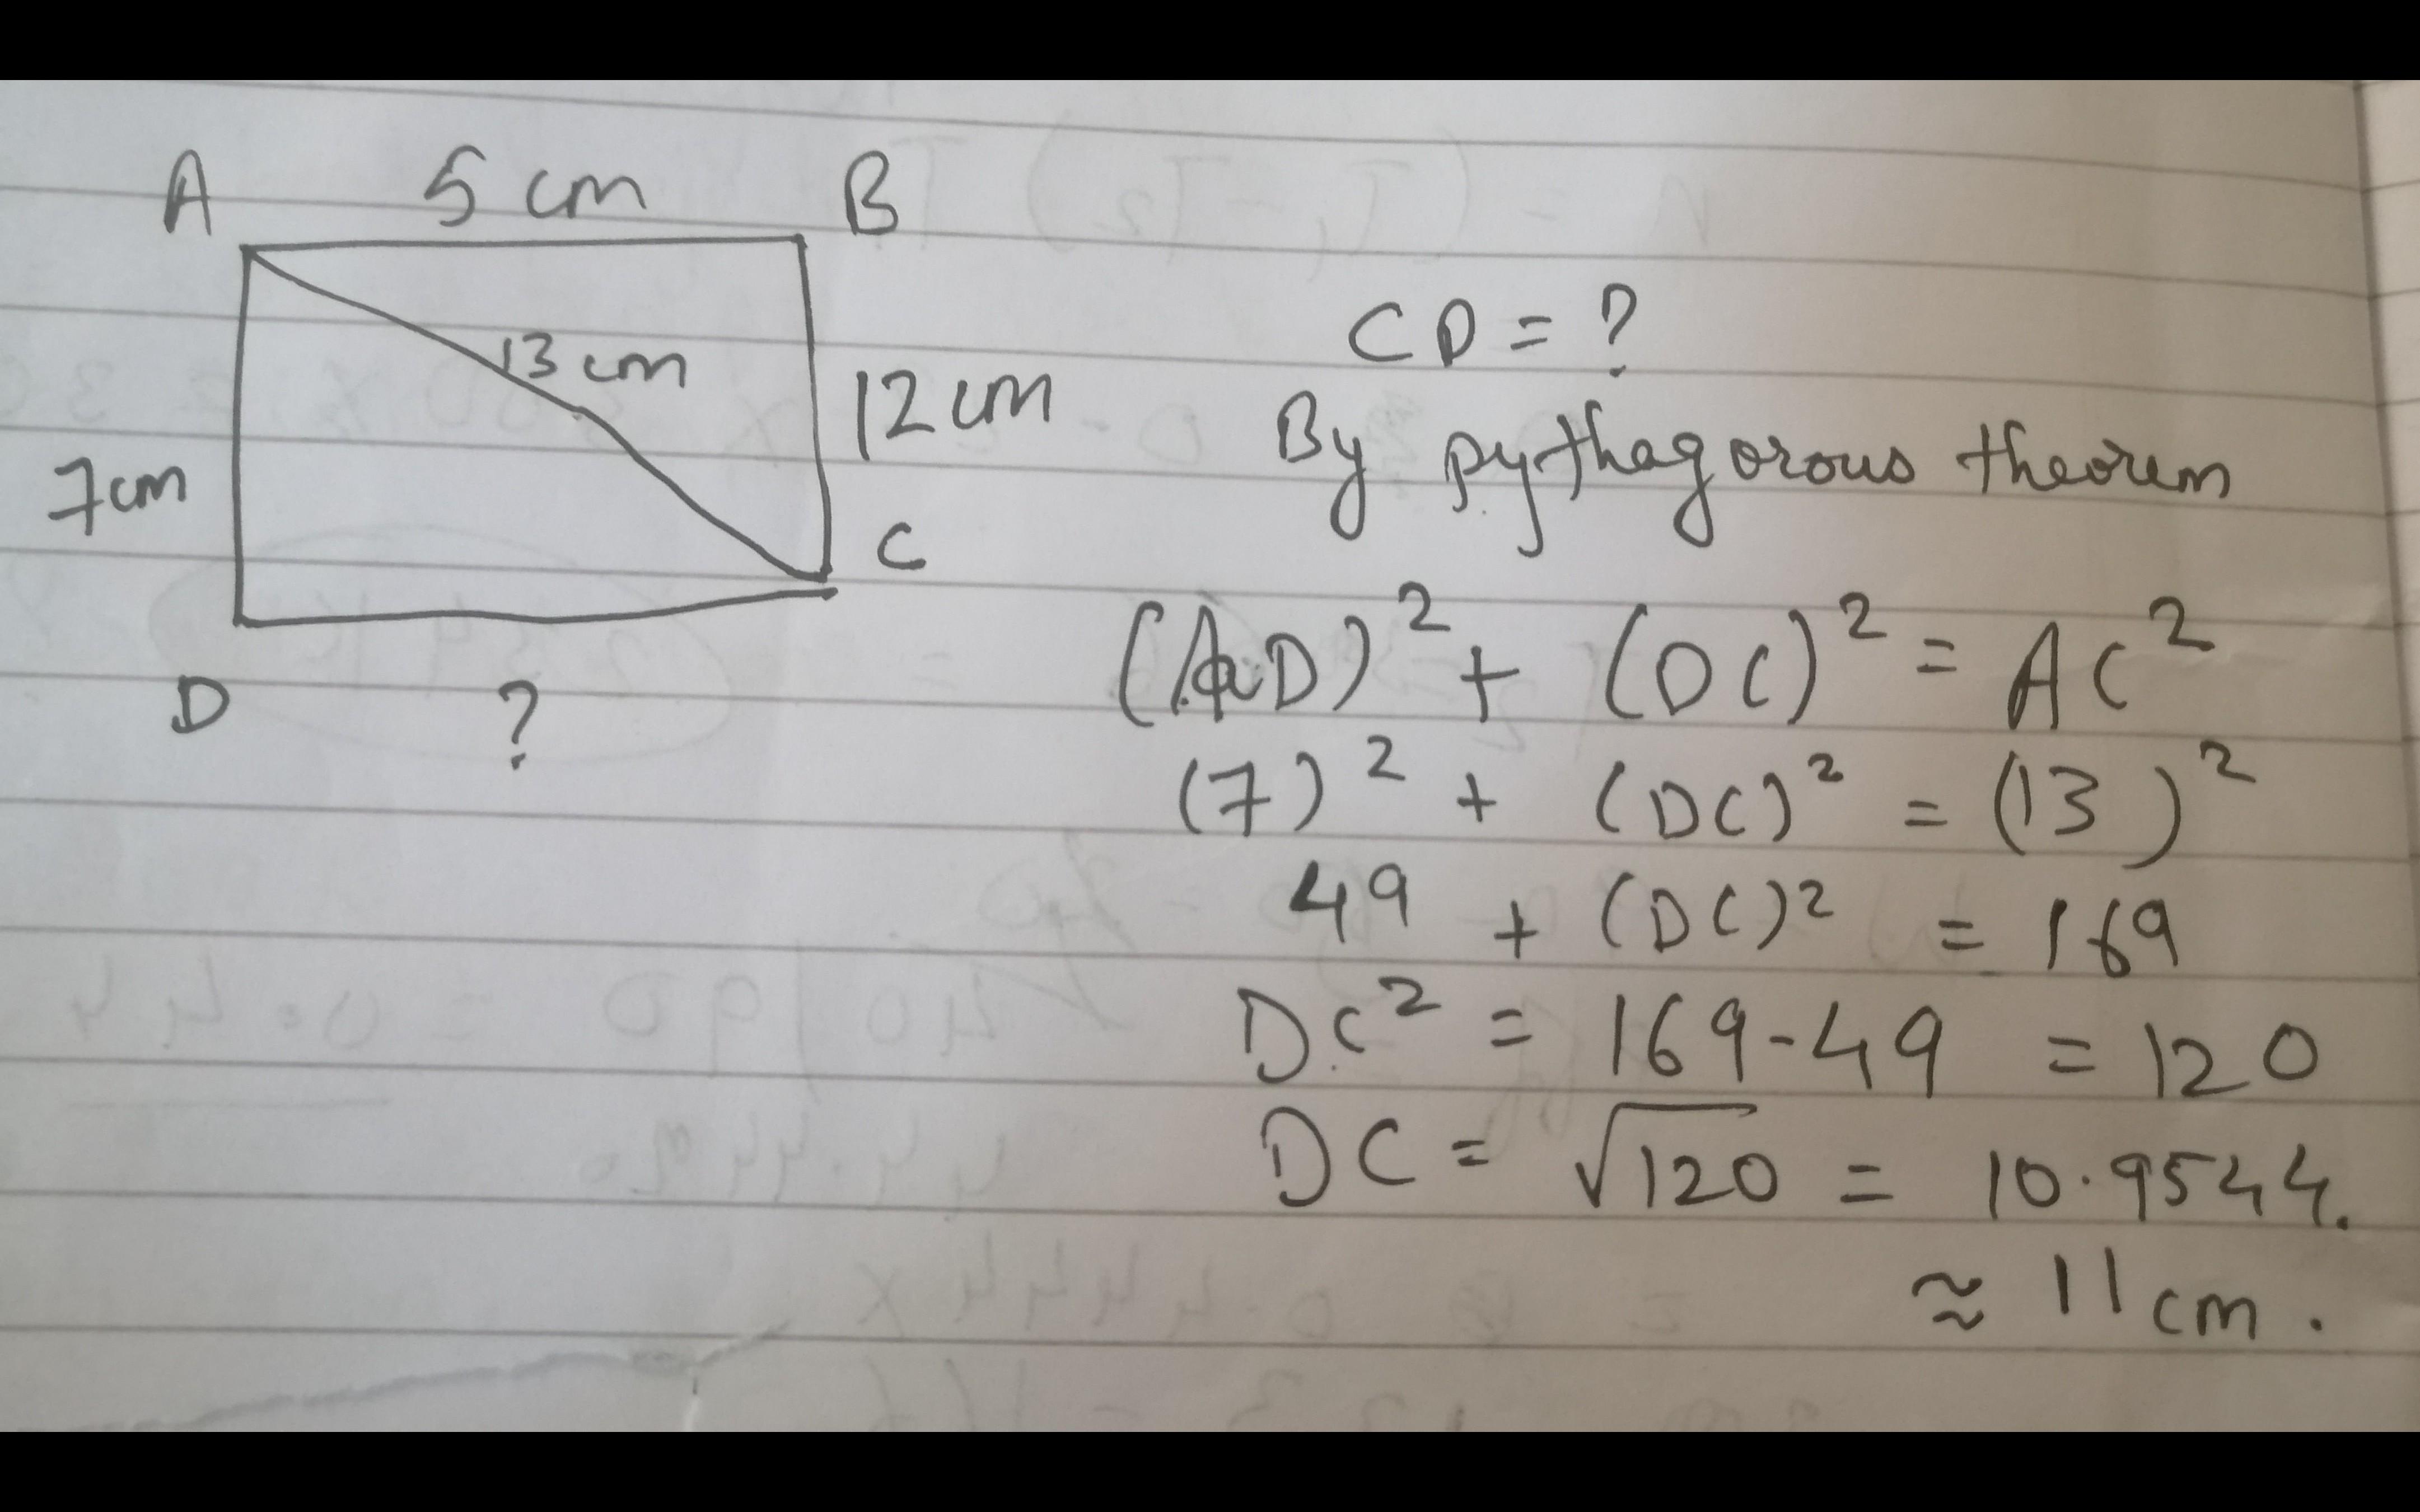 A 5 cm B
13 cm
12 cm
7cm
C
D ?
CD = ?
By pythagorous theorem
(AD)² + (DC)² = AC²
(7)² + (DC)² = (13)²
49 + (DC)² = 169
DC² = 169-49 = 120
DC = √120 = 10.9544.
≈ 11cm.